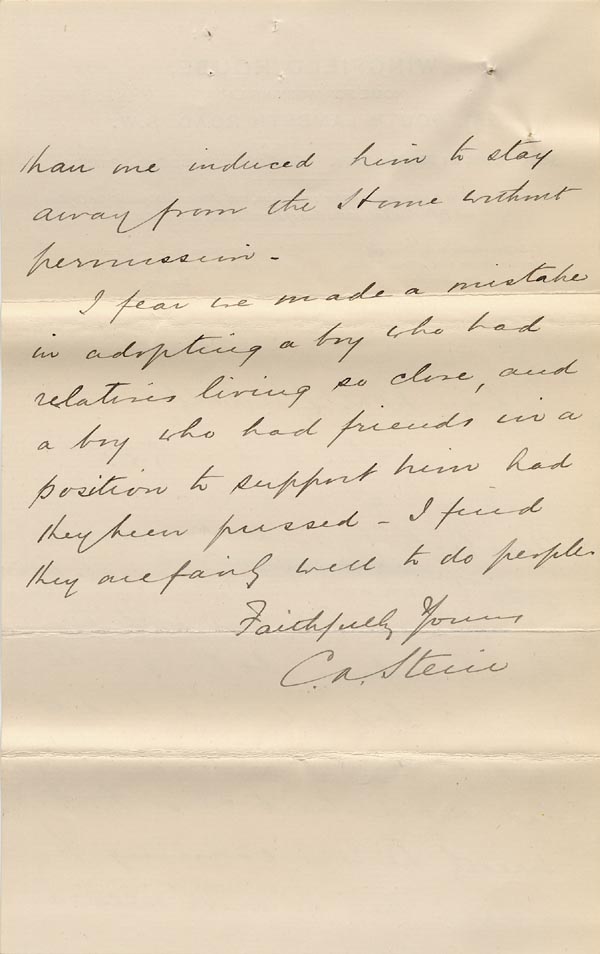 than one induced him to stay
away from the Home without
permission -
I fear we made a mistake
in adopting a boy who had
relatives living so close, and
a boy who had friends in a
position to support him had
they been pressed - I find
they are fairly well to do people.
Faithfully Yours
C. A. Stein